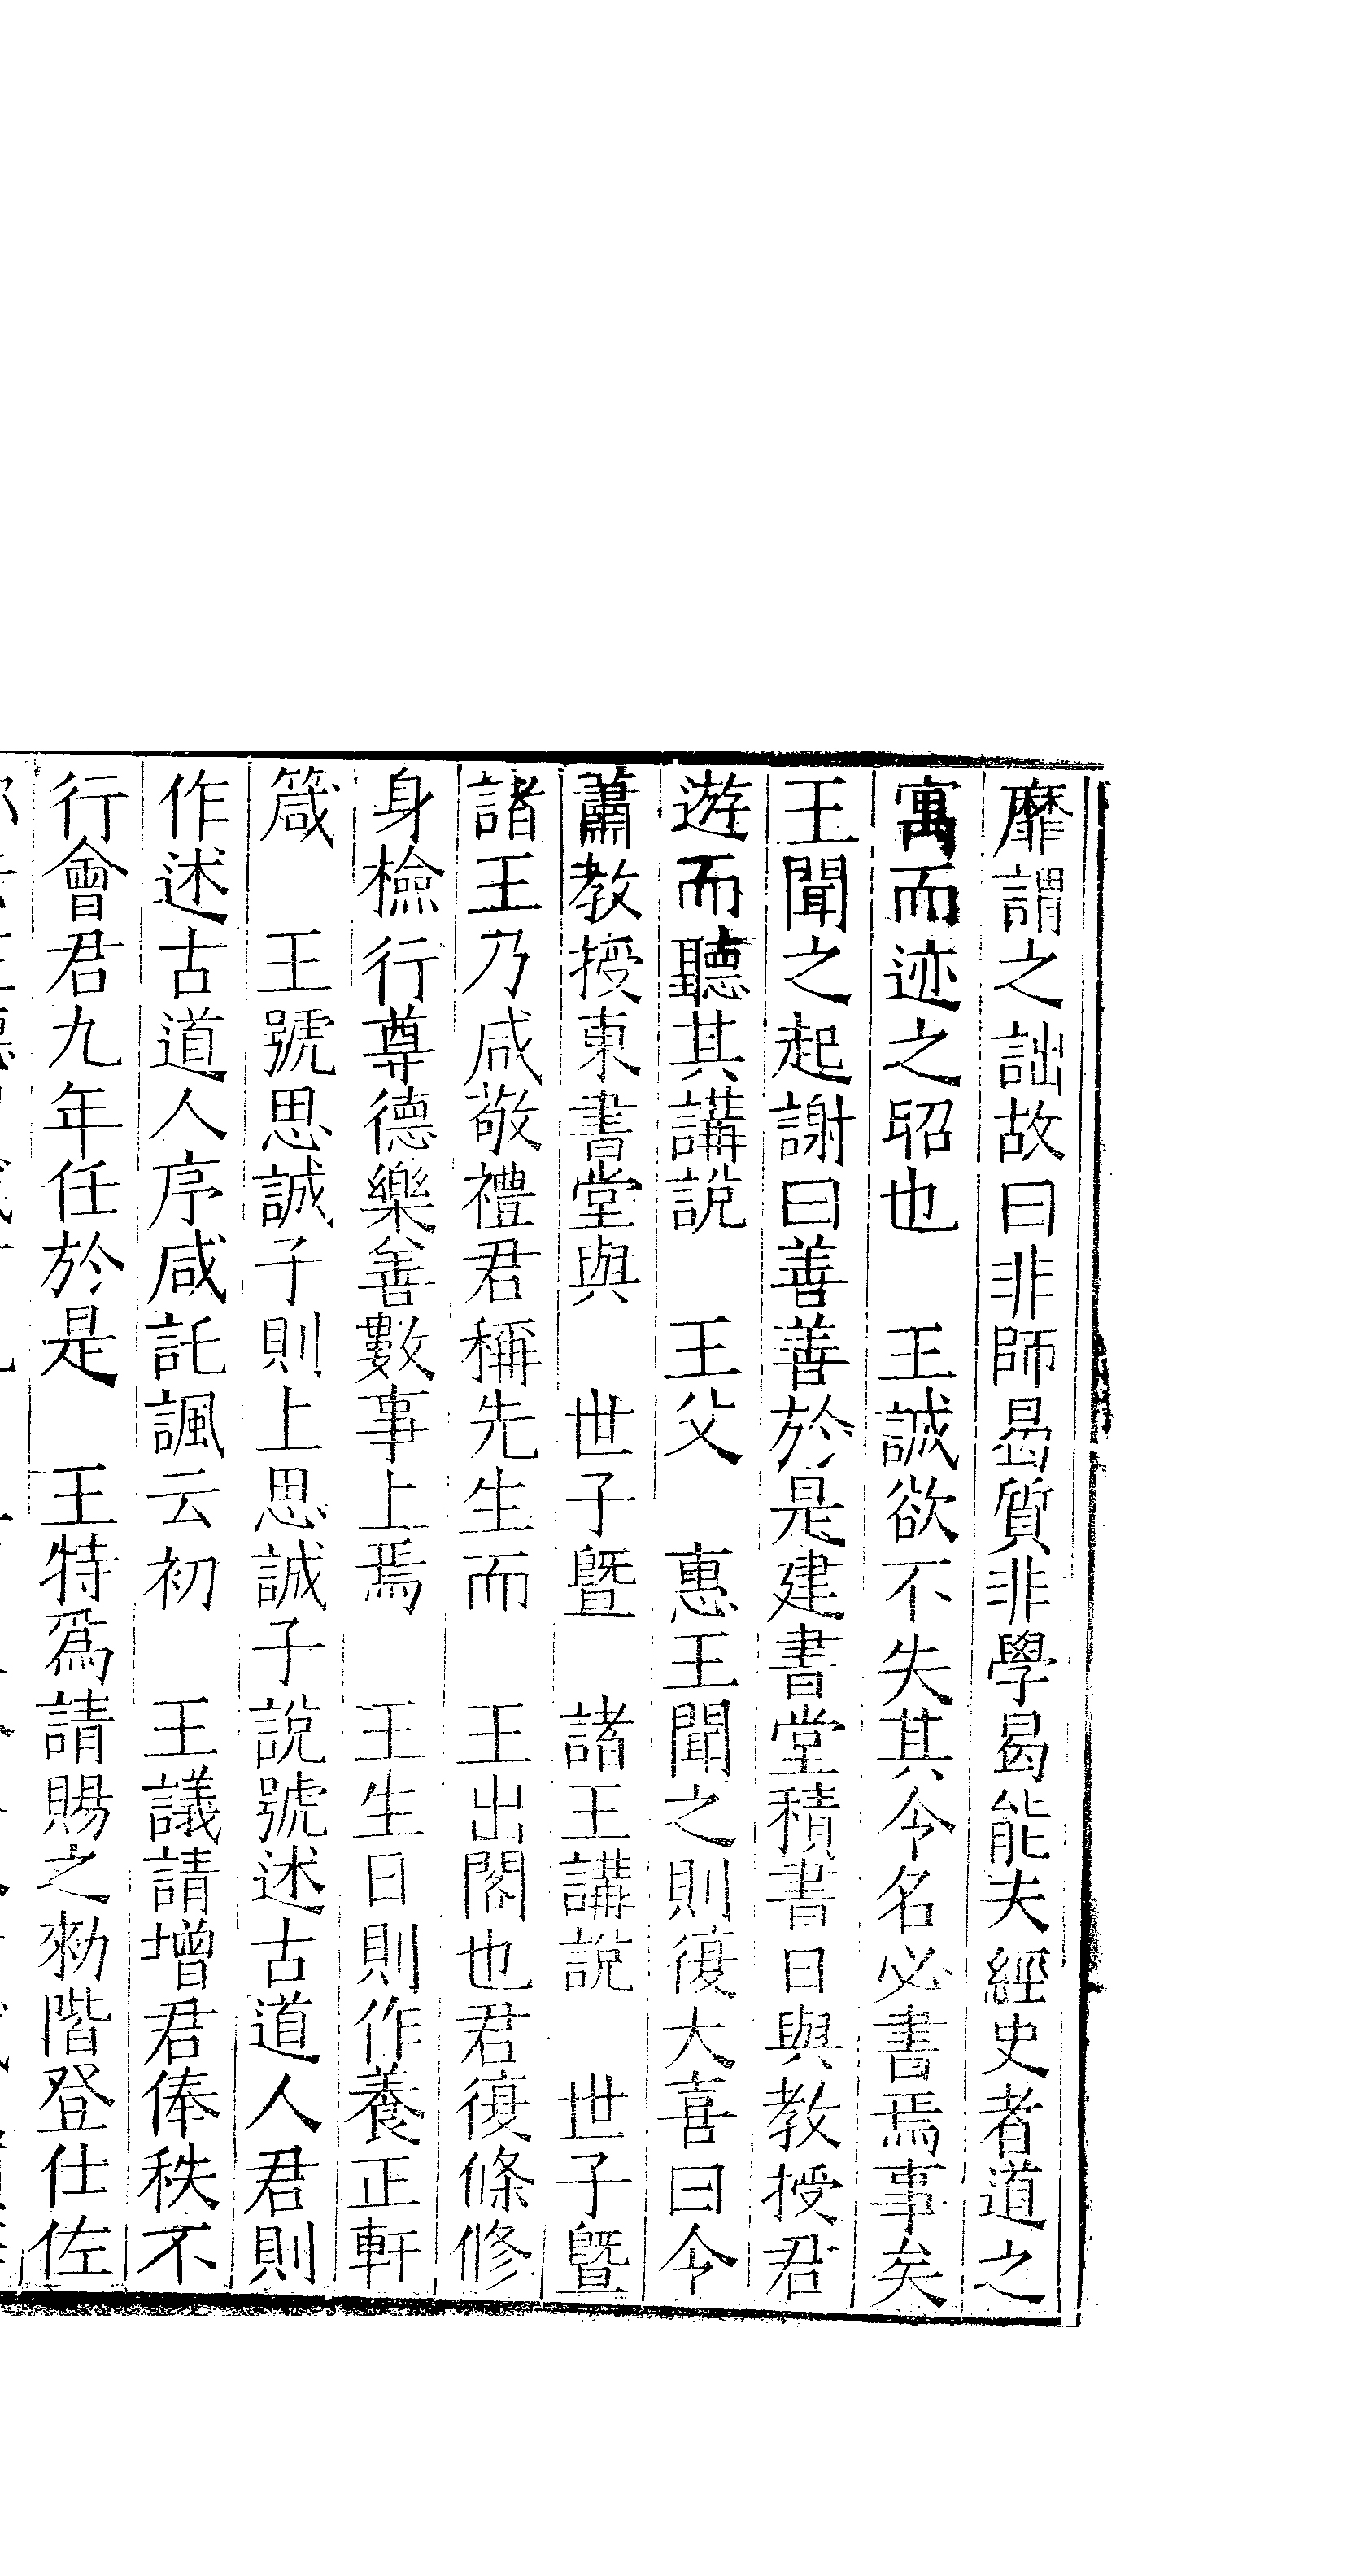 靡謂之詘故曰非師曷質非學曷能夫經史者道之
寓而迹之昭也　王誠欲不失其今名必書焉事矣
王聞之起謝曰善善於是建書堂積書日與教授君
遊而聽其講說　王父　惠王聞之則復大喜曰今
蕭教授東書堂與　世子暨　諸王講說　世子暨
諸王乃咸敬禮君稱先生而　王出閤也君復條修
身檢行尊德樂善數事上焉　王生日則作養正軒
箴　王號思誠子則上思誠子說號述古道人君則
作述古道人序咸託諷云初　王議請增君俸秩不
行會君九年任於是　王特爲請賜之勑階登仕佐